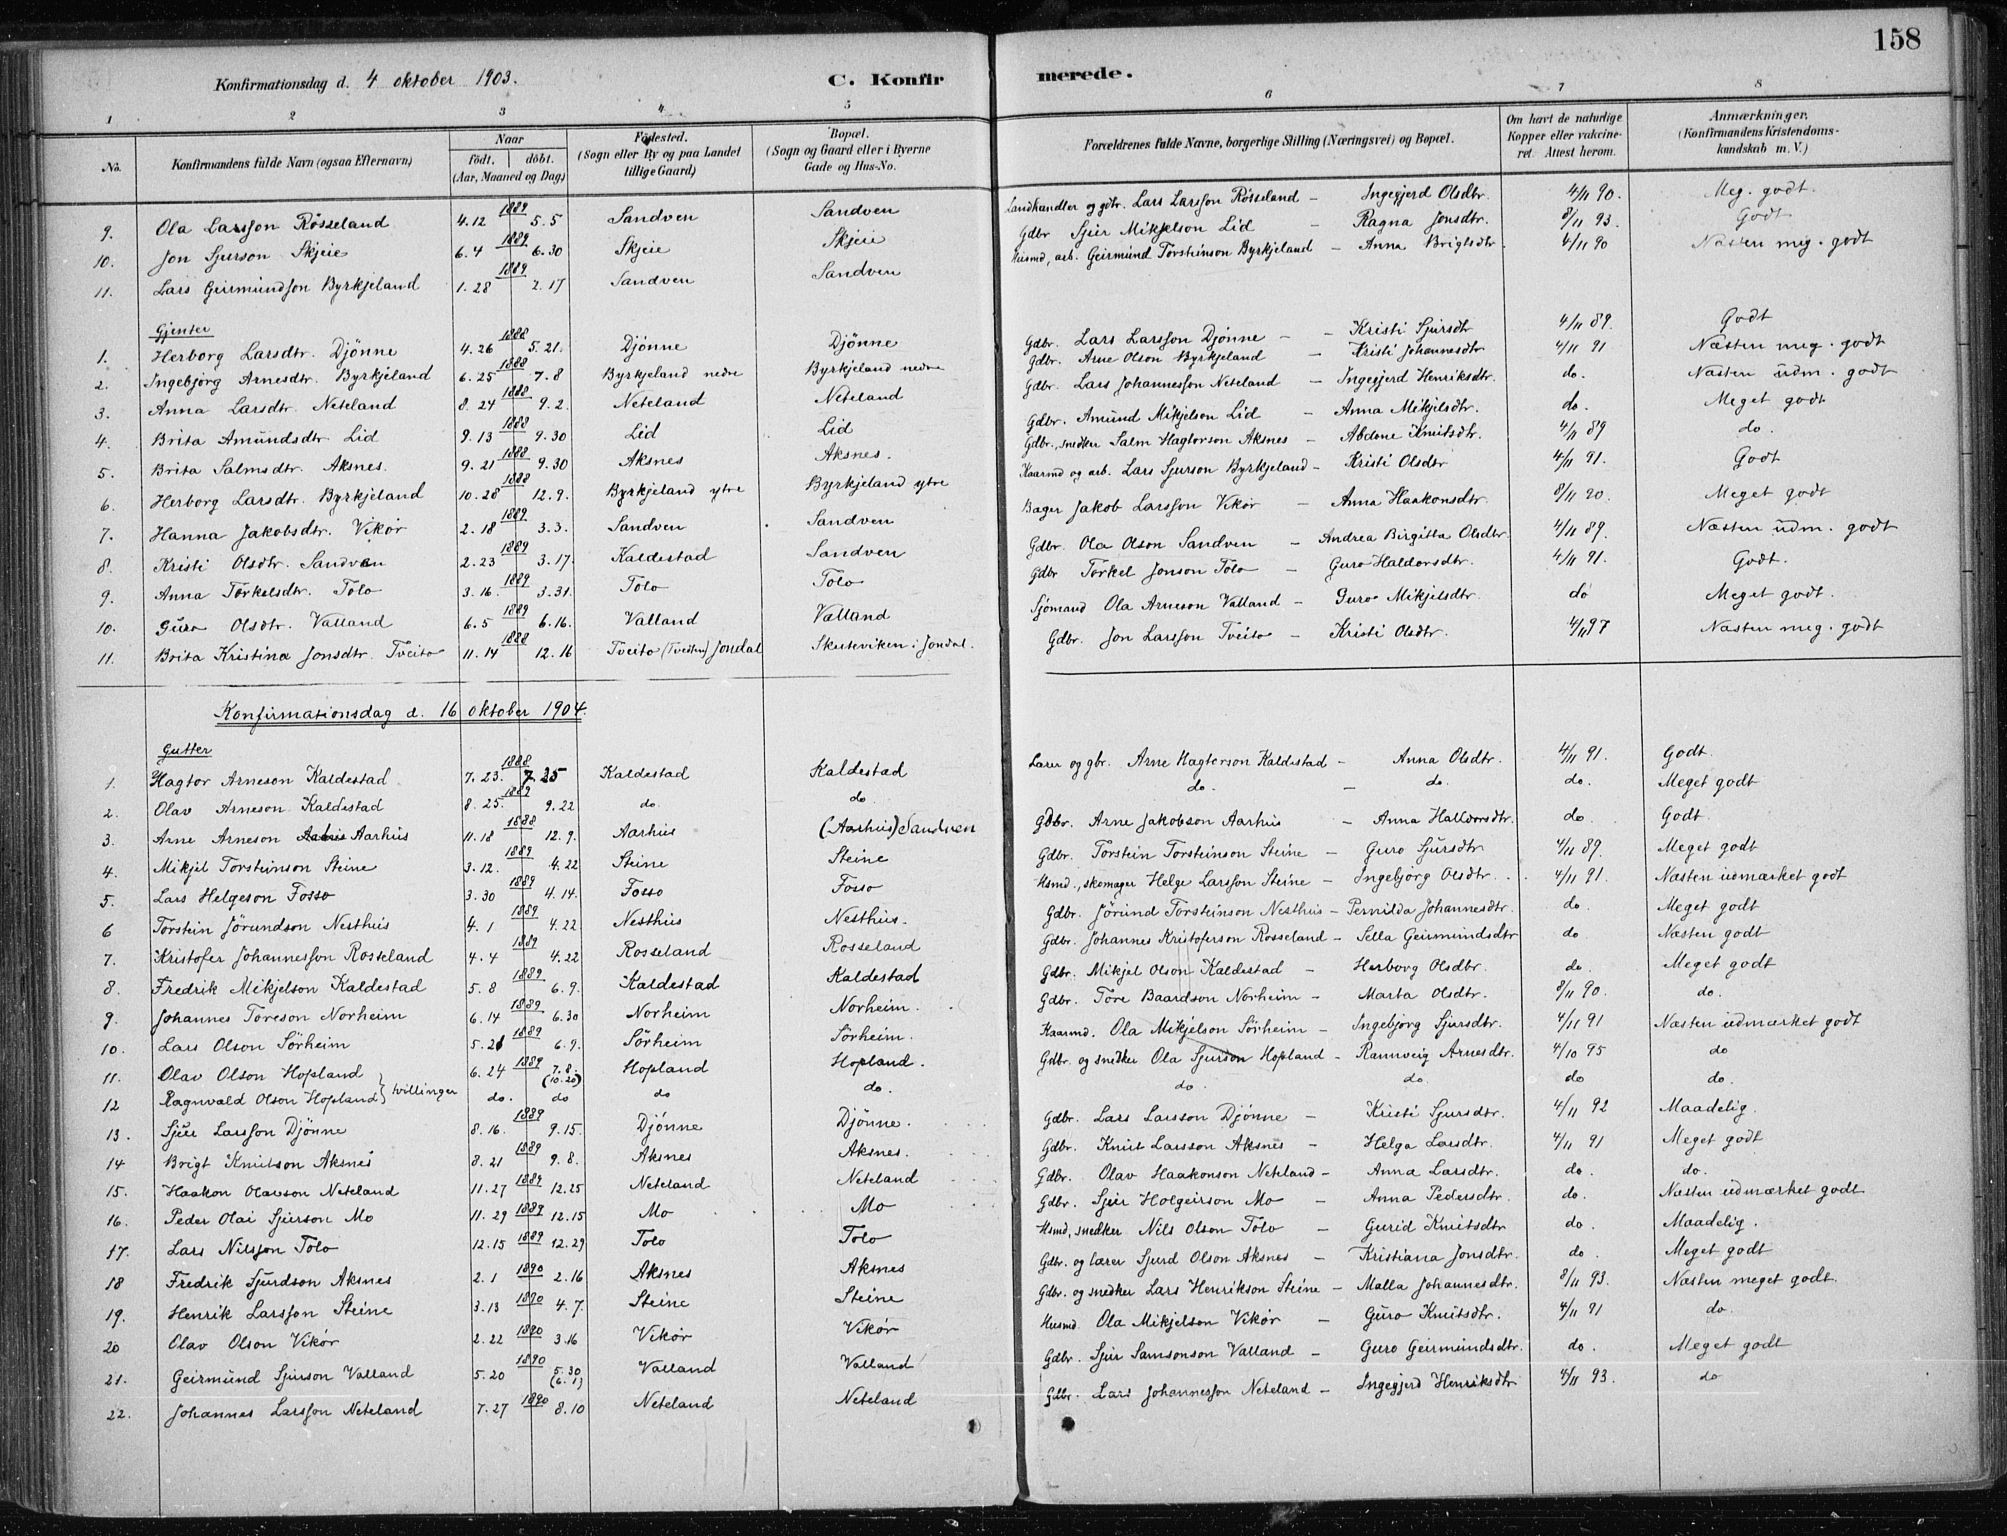 158
Konfirmationsdag d. 4 oktober 1903. C. Konfir merede.
1 2 3 4 5 6 7 8
No. Konfirmandens fulde Navn (ogsaa Efternavn) Naar Födt. döbt. (Aar, Maaned og Dag) Födested. (Sogn eller By og paa Landet tillige Gaard) Bopæl. (Sogn og Gaard eller i Byerne Gade og Hus-No. Forældrenes fulde Navne, borgerlige Stilling (Næringsvei) og Bopæl. Om havt de naturlige Kopper eller vakcineret. Attest herom. Anmærkninger. (Konfirmandens Kristendomskundskab m. V.)
9. Ola Larsson Rösseland 4.12 1889 5.5 Sandven Sandven Landhandler og gdbr. Lars Larsson Rösseland – Ingegjerd Olsdtr. 4/11 90. Meg. godt.
10. Jon Sjurson Skjeie 6.4 1889 6.30 Skjeie Skjeie Gdbr Sjur Mikjelson Lid – Ragna Jonsdtr. 8/11 93. Godt
11. Lars Geirmundson Byrkjeland 1.28 1889 2.17 Sandven Sandven Husmd, arb. Geirmund Torsteinson Byrkjeland – Anna Brigtsdtr. 4/11 90 Næsten meg. godt
Gjenter
1. Herborg Larsdtr. Djönne 4.26 1888 5.21. Djönne Djönne Gdbr. Lars Larsson Djönne – Kristi Sjursdtr 4/11 89. Godt
2. Ingebjörg Arnesdtr. Byrkjeland 6.25 1888 7.8 Byrkjeland nedre Byrkjeland nedre Gdbr. Arne Olson Byrkjeland – Kristi Johannesdtr 4/11 91 Næsten meg. godt
3. Anna Larsdtr. Neteland 8.24 1888 9.2. Neteland Neteland Gdbr. Lars Johannesson Neteland – Ingegjerd Henriksdtr. do. Næsten udm. godt
4. Brita Amundsdtr Lid 9.13 1888 9.30 Lid Lid Gdbr. Amund Mikjelson Lid – Anna Mikjelsdtr. do. Meget godt
5. Brita Salmsdtr. Aksnes. 9.21 1888 9.30 Aksnes Aksnes. Gdbr., snedker Salm Hagtorson Aksnes – Abdone Knutsdtr. 4/11 89 do.
6. Herborg Larsdtr. Byrkjeland 10.28 1888 12.9. Byrkjeland ytre Byrkjeland ytre Kaarmd og arb. Lars Sjurson Byrkjeland – Kristi Olsdtr 4/11 91. Godt
7. Hanna Jakobsdtr. Vikör 2.18 1889 3.3. Sandven Sandven Bager Jakob Larsson Vikör – Anna Haakonsdtr. 8/11 90. Meget godt
8. Kristi Olsdtr. Sandven 2.23 1889 3.17. Kaldestad Sandven Gdbr. Ola Olson Sandven – Andrea Birgitta Olsdtr. 4/11 89. Næsten udm. godt
9. Anna Torkelsdtr. Tolo 3.16. 1889 3.31. Tolo Tolo Gdbr Torkel Jonson Tolo – Guro Haldorsdtr. 4/11 91. Godt.
10. Guro Olsdtr. Valland 6.5 1889 6.16. Valland Valland Sjömand Ola Arneson Valland – Guro Mikjelsdtr. do Meget godt.
11. Brita Kristina Jonsdtr. Tveito 11.14 1888 12.16 Tveito (Tveiten) Jondal Skuteviken i Jondal. Gdbr. Jon Larsson Tveito – Kristi Olsdtr. 4/11 97 Næsten meg. godt
Konfirmationsdag d. 16 oktober 1904.
Gutter
1. Hagtor Arneson Kaldestad 7.23. 1888 7.25 Kaldestad Kaldestad Lærer og gbr. Arne Hagtorson Kaldestad – Anna Olsdtr. 4/11 91. Godt
2. Olav Arneson Kaldestad 8.25. 1889 9.22 do. do. do. – do. do. Meget godt
3. Arne Arneson Aarhus 11.18 1888 12.9. Aarhus (Aarhus) Sandven Gdbr. Arne Jakobson Aarhus – Anna Halldorsdtr. do Godt.
4. Mikjel Torsteinson Steine 3.12. 1889 4.22 Steine Steine Gdbr. Torstein Torsteinson Steine – Guro Sjursdtr 4/11 89. Meget godt
5. Lars Helgeson Fosso 3.30 1889 4.14. Fosso Fosso Hsmd., skomager Helge Larsson Steine – Ingebjörg Olsdtr. 4/11 91. Næsten udmærket godt
6 Torstein Jörundson Nesthus 4.1 1889 4.22 Nesthus Nesthus. Gdbr. Jörund Torsteinson Nesthus – Pernilda Johannesdtr. do. Meget godt
7. Kristofer Johannesson Rosseland 4.4 1889 4.22 Rosseland Rosseland Gdbr. Johannes Kristoferson Rosseland – Sella Geirmundsdtr do Næsten godt
8. Fredrik Mikjelson Kaldestad 5.8 1889 6.9. Kaldestad Kaldestad Gdbr. Mikjel Olson Kaldestad – Herborg Olsdtr. do. Meget godt
9. Johannes Toreson Norheim 6.14 1889 6.30 Norheim Norheim. Gdbr. Tore Baardson Norheim – Marta Olsdtr. 8/11 90. do.
10. Lars Olson Sörheim 5.21 1889 6.9. Sörheim Sörheim. Kaarmd. Ola Mikjelson Sörheim – Ingebjorg Sjursdtr. 4/11 91 Næsten udmærket godt
11. Olav Olson Hopland 6.24 1889 7.8. (10.20) Hopland Hopland. Gdbr. og snedker Ola Sjurson Hopland – Rannveig Arnesdtr. 4/10 95 do
12 Ragnvald Olson Hopland } tvillinger do. do do do. do. do. do do.
13. Sjur Larsson Djönne 8.16. 1889 9.15. Djönne Djönne. Gdbr. Lars Larsson Djönne – Kristi Sjursdtr. 4/11 92 Maadelig.
14 Brigt Knutson Aksnes 8.21 1889 9.8. Aksnes Aksnes. Gdbr. Knut Larsson Aksnes – Helga Larsdtr. 4/11 91 Meget godt
15. Haakon Olavson Neteland 11.27 1889 12.25 Neteland Neteland Gdbr. Olav Haakonson Neteland – Anna Larsdtr. do. do.
16. Peder Olai Sjurson Mo 11.29 1889 12.15 Mo Mo Gdbr. Sjur Holgeirson Mo – Anna Pedersdtr. do. Næsten udmærket godt
17. Lars Nilsson Tolo 12.15 1889 12.29 Tolo Tolo Hsmd, snedker Nils Olson Tolo – Gurid Knutsdtr do. Maadelig.
18 Fredrik Sjurdson Aksnes 2.1 1890 2.16 Aksnes Aksnes Gdbr. og lærer Sjurd Olson Aksnes – Kristiana Jonsdtr. do. Meget godt
19. Henrik Larsson Steine 3.13 1890 4.7. Steine Steine Gdbr. og snedker Lars Henrikson Steine – Malla Johannesdtr. 8/11 93. Næsten meget godt.
20 Olav Olson Vikör 2.22 1890 3.16 Vikör Vikör Husmd. Ola Mikjelson Vikör – Guro Knutsdtr. 4/11 91 do.
21. Geirmund Sjurson Valland 5.20 1890 5.30 (6.1) Valland Valland Gdbr. Sjur Samsonson Valland – Guro Geirmundsdtr. do. Meget godt
22. Johannes Larsson Neteland 7.27 1890 8.10 Neteland Neteland Gdbr. Lars Johannesson Neteland – Ingegjerd Henriksdtr 4/11 93. do